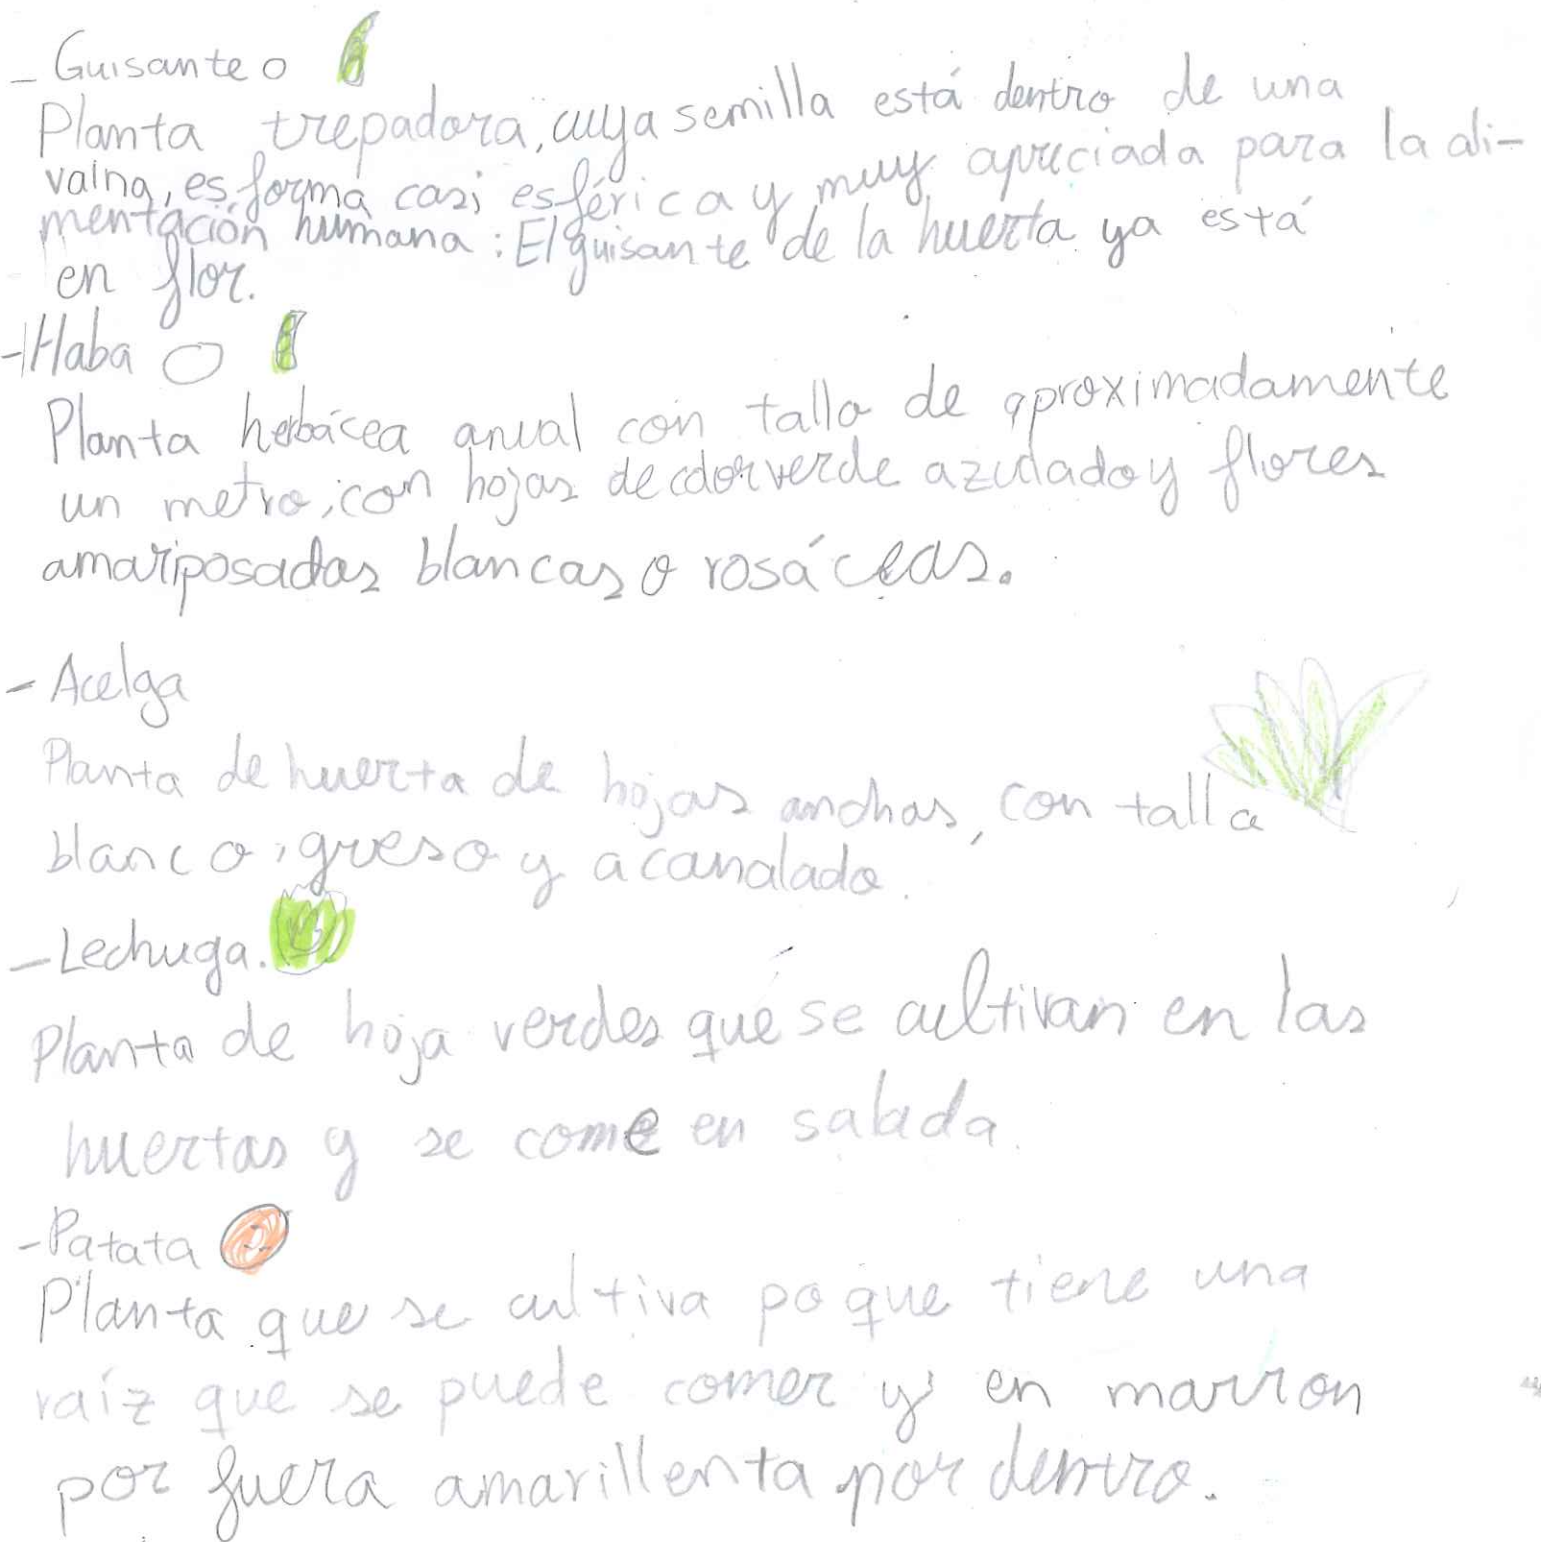 - Guisante
Planta trepadora, cuya semilla está dentro de una
vaina, es forma casi esférica y muy apreciada para la ali-
mentación humana: El guisante de la huerta ya está
en flor.
- Haba
Planta herbácea anual con tallo de aproximadamente
un metro, con hojas de color verde azulado y flores
amariposadas blancas o rosáceas.
- Acelga
Planta de huerta de hojas anchas, con tallo
blanco, grueso y acanalado.
- Lechuga.
Planta de hoja verdes que se cultivan en las
huertas y se come en salada.
- Patata
Planta que se cultiva poque tiene una
raíz que se puede comer y en marron
por fuera amarillenta por dentro.